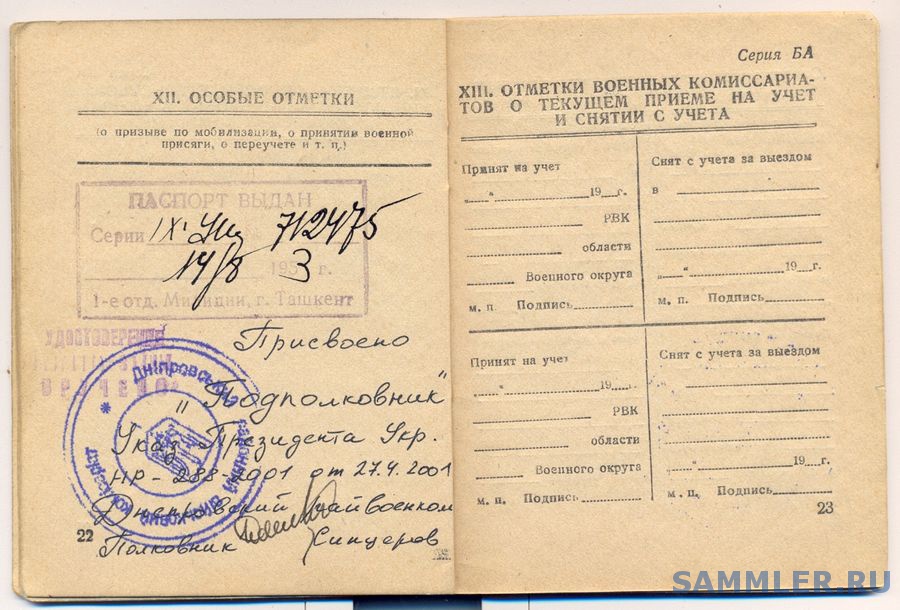 XII. ОСОБЫЕ ОТМЕТКИ
(о призыве по мобилизации, о принятии военной
присяги, о переучете и т. п.)
ПАСПОРТ ВЫДАН
Серии IX. 712475
14/8 1953 г.
1-е отд. Милиции, г. Ташкент
УДОСТОВЕРЕНИЕ
ВРУЧЕНО
Присвоено
"Подполковник"
Указ Президента Укр.
нр - 288-2001 от 27.4.2001
Днепровский райвоенком
Полковник Синцеров
Дніпровський районний військовий комісаріат
22
Серия БА
XIII. ОТМЕТКИ ВОЕННЫХ КОМИССАРИА-
ТОВ О ТЕКУЩЕМ ПРИЕМЕ НА УЧЕТ
И СНЯТИИ С УЧЕТА
Принят на учет
„ “ 19 г.
РВК
области
Военного округа
м. п. Подпись
Снят с учета за выездом
в
„ “ 19 г.
м. п. Подпись
Принят на учет
„ “ 19 г.
РВК
области
Военного округа
м. п. Подпись
Снят с учета за выездом
в
„ “ 19 г.
м. п. Подпись
23
SAMMLER.RU